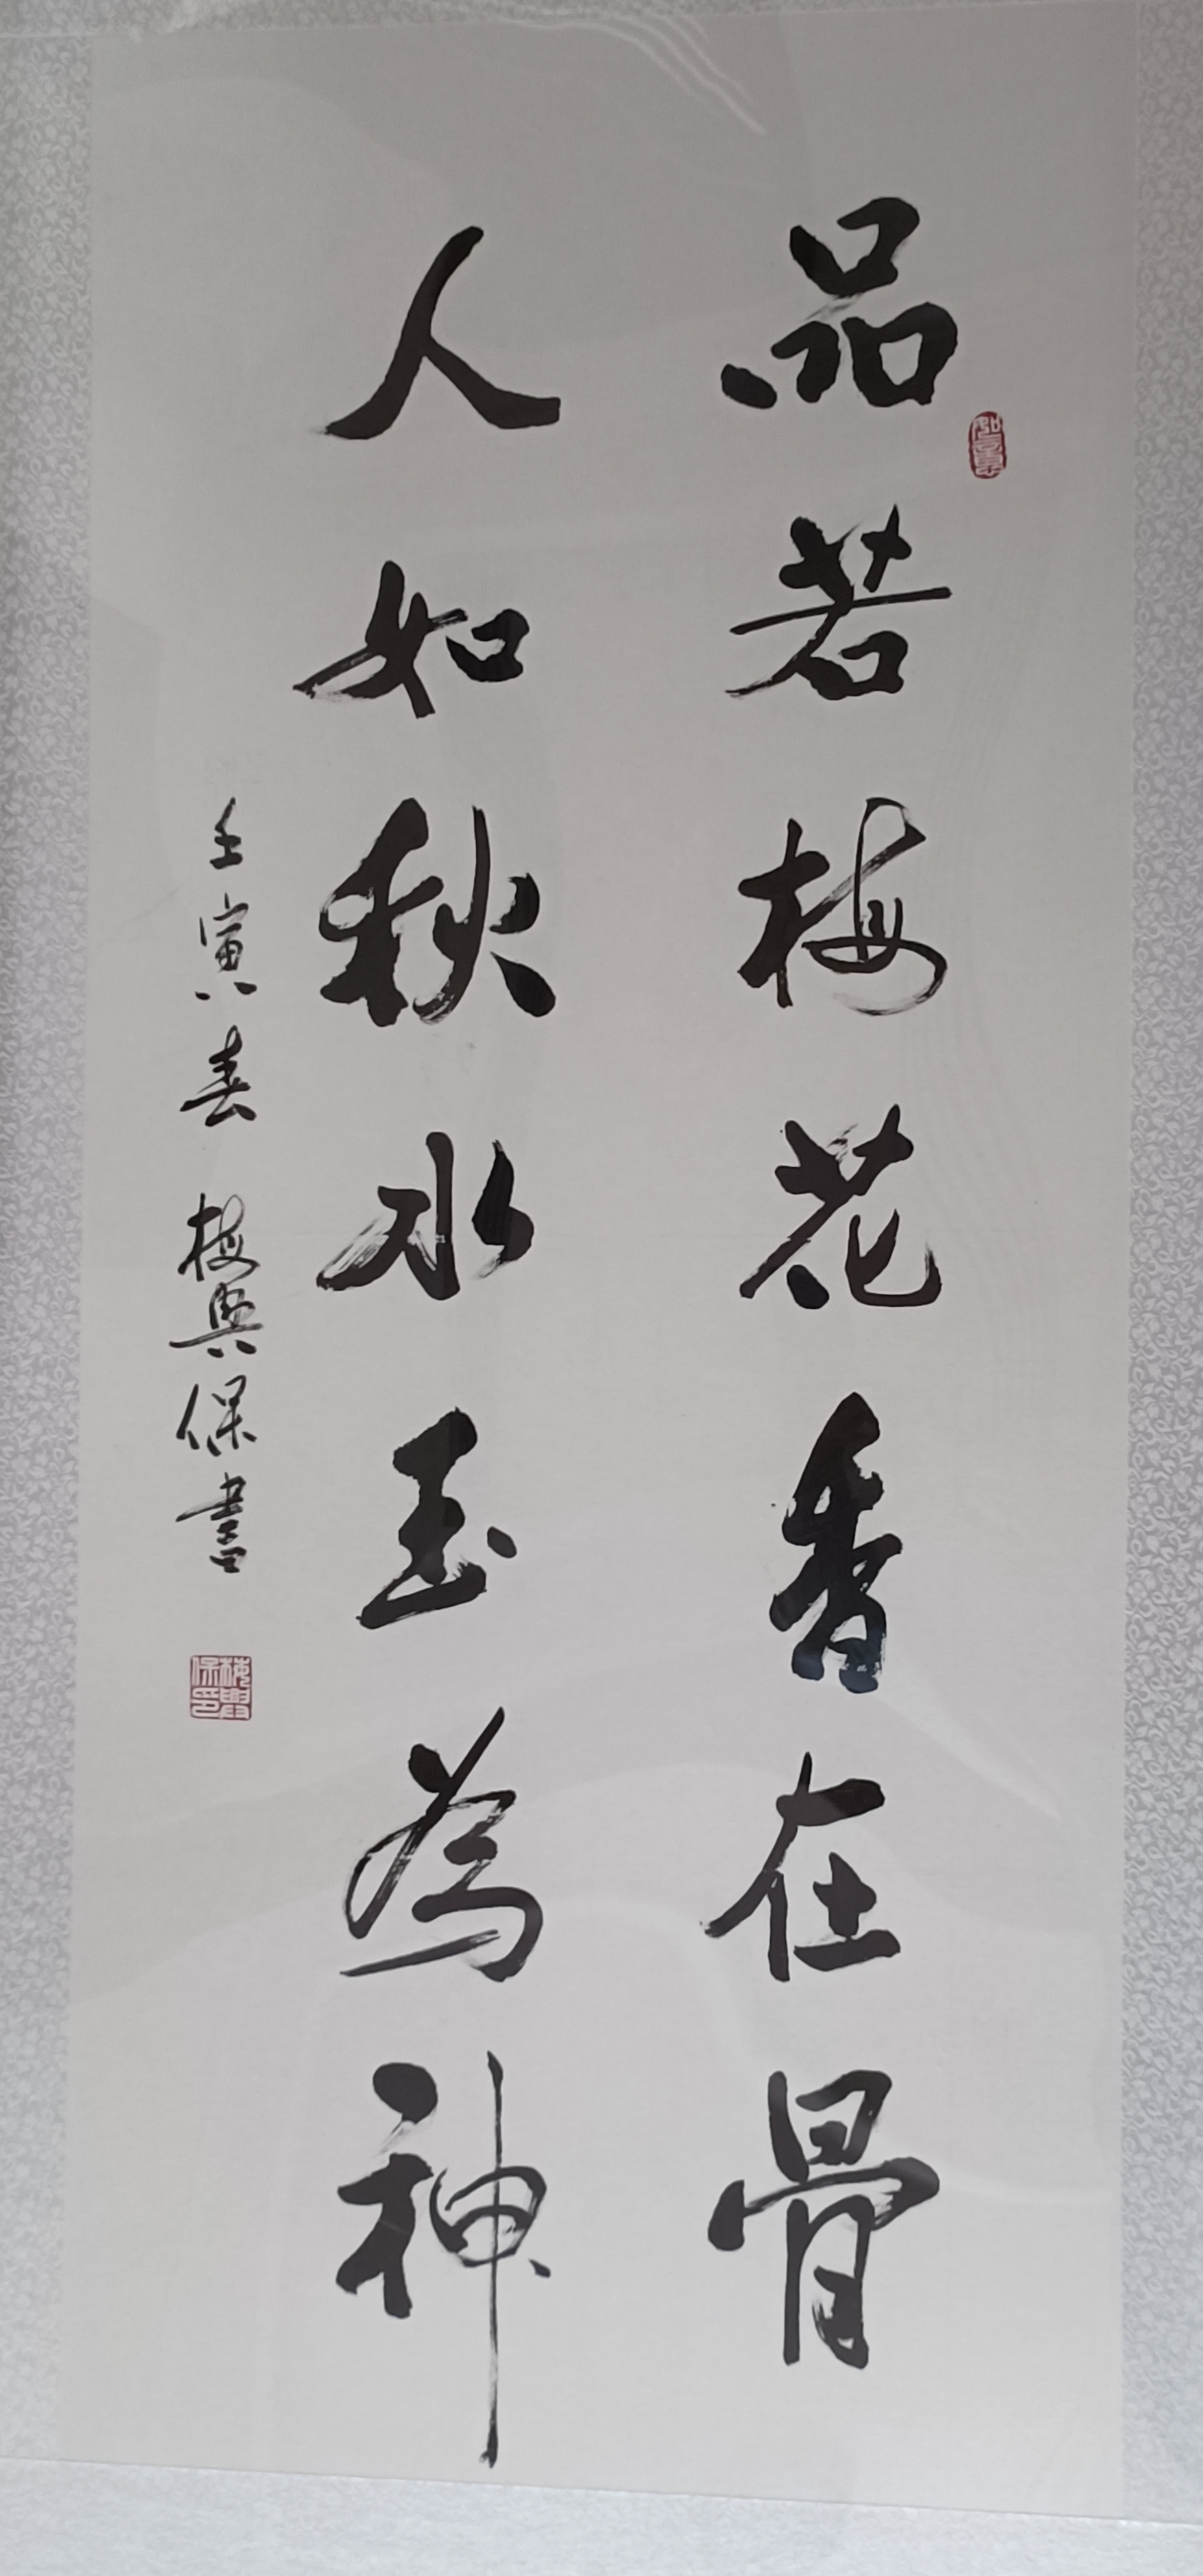 品若梅花香在骨
人如秋水玉為神
壬寅春 梅興保書
梅興保印